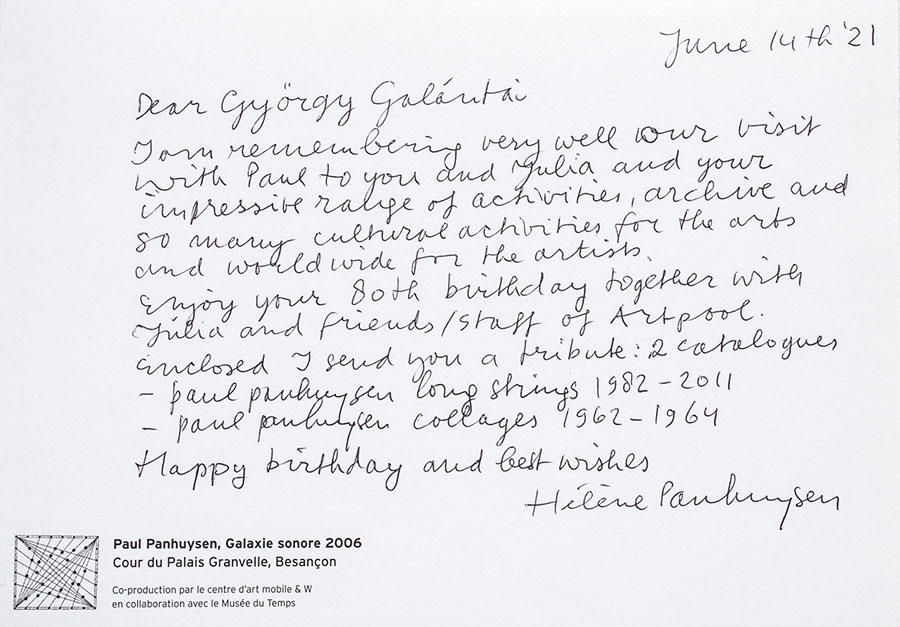 June 14th '21
Dear György Galántai
I am remembering very well our visit
with Paul to you and Julia and your
impressive range of activities, archive and
so many cultural activities for the arts
and worldwide for the artists.
Enjoy your 80th birthday together with
Júlia and friends/staff of Artpool.
Enclosed I send you a tribute: 2 catalogues
- paul panhuysen long strings 1982 - 2011
- paul panhuysen collages 1962 - 1964
Happy birthday and best wishes
Hélène Panhuysen
Paul Panhuysen, Galaxie sonore 2006
Cour du Palais Granvelle, Besançon
Co-production par le centre d'art mobile & W
en collaboration avec le Musée du Temps